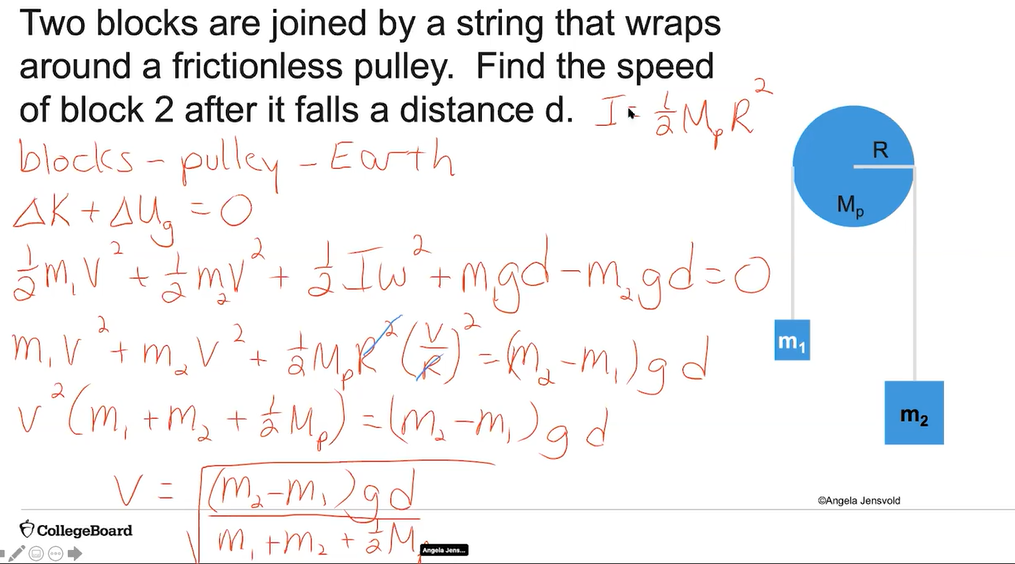 Two blocks are joined by a string that wraps
around a frictionless pulley. Find the speed
of block 2 after it falls a distance d.
I = ½ MₚR²
blocks - pulley - Earth
ΔK + ΔU_g = 0
½ m₁v² + ½ m₂v² + ½ Iω² + m₁gd - m₂gd = 0
m₁v² + m₂v² + ½ MₚR² (v/R)² = (m₂ - m₁)gd
v² (m₁ + m₂ + ½ Mₚ) = (m₂ - m₁)gd
v = √((m₂ - m₁)gd / (m₁ + m₂ + ½ Mₚ))
R
Mₚ
m₁
m₂
©Angela Jensvold
CollegeBoard
Angela Jens...